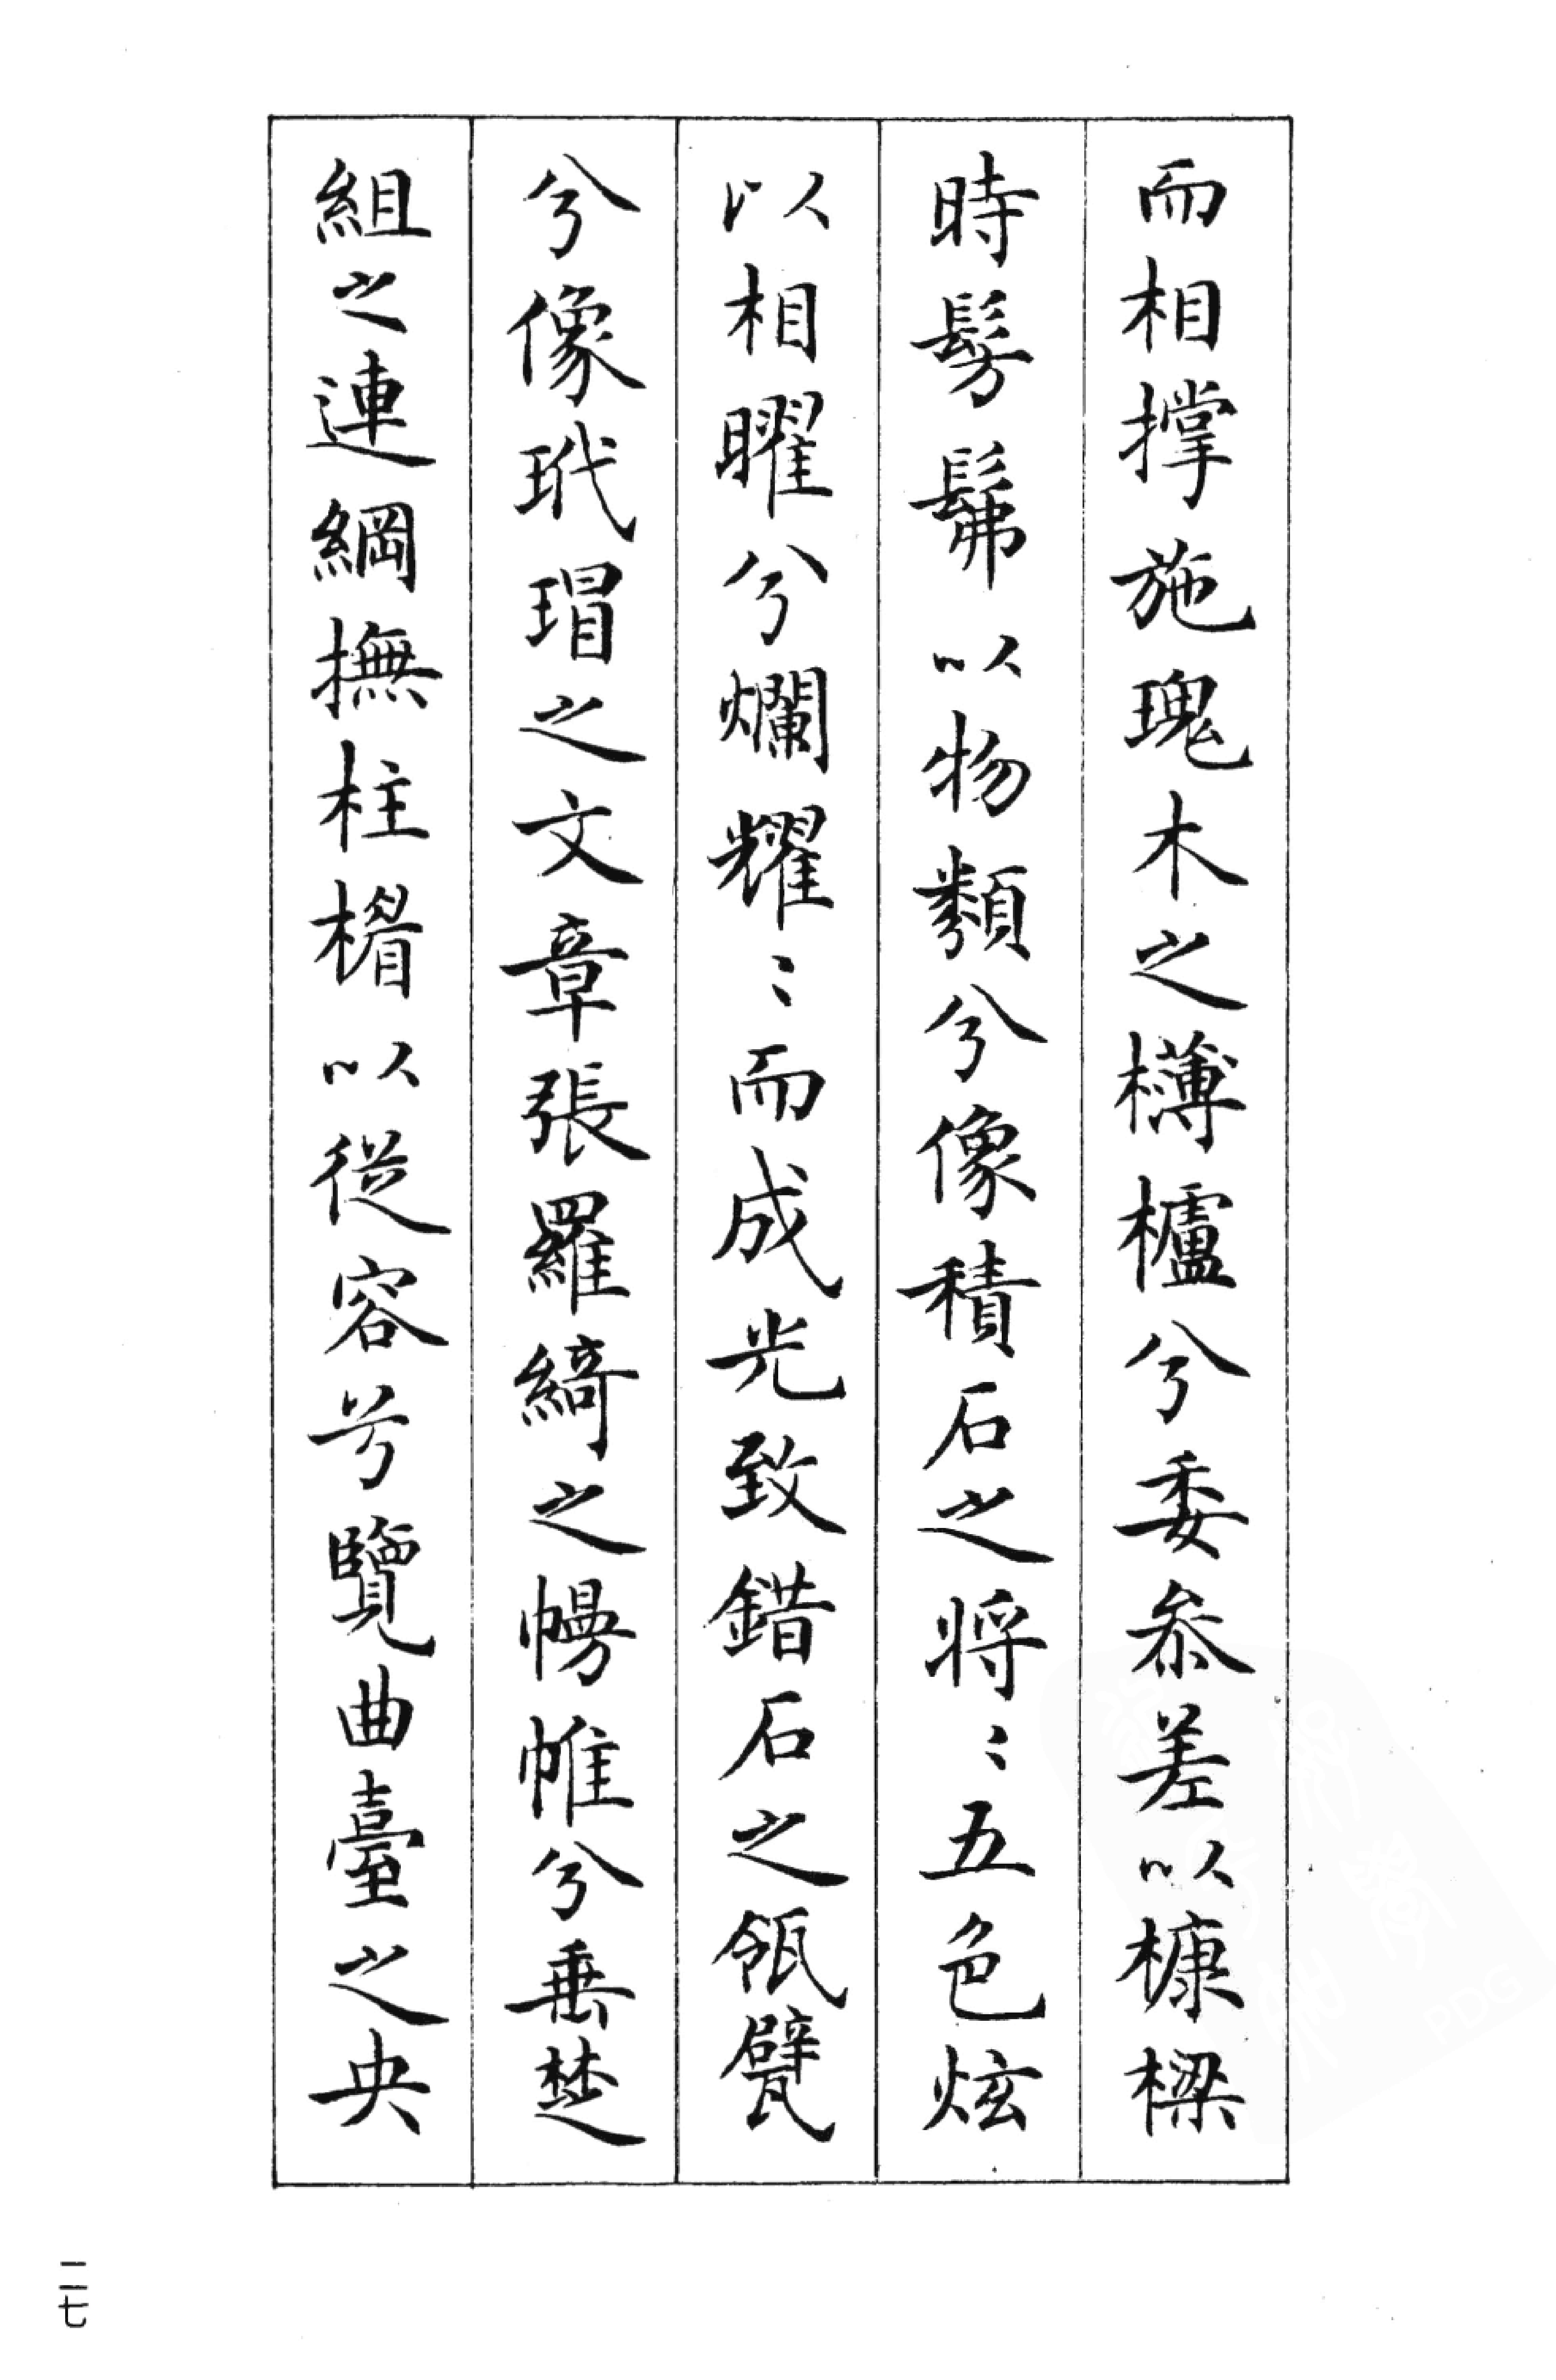 而相撑施瑰木之欂櫨兮委叅差以槺梁
時髣髴以物類兮像積石之将〻五色炫
以相曜兮爛耀〻而成光致錯石之瓴甓
兮像玳瑁之文章張羅綺之幔帷兮垂楚
組之連綱撫柱楣以從容兮覽曲臺之央
二七